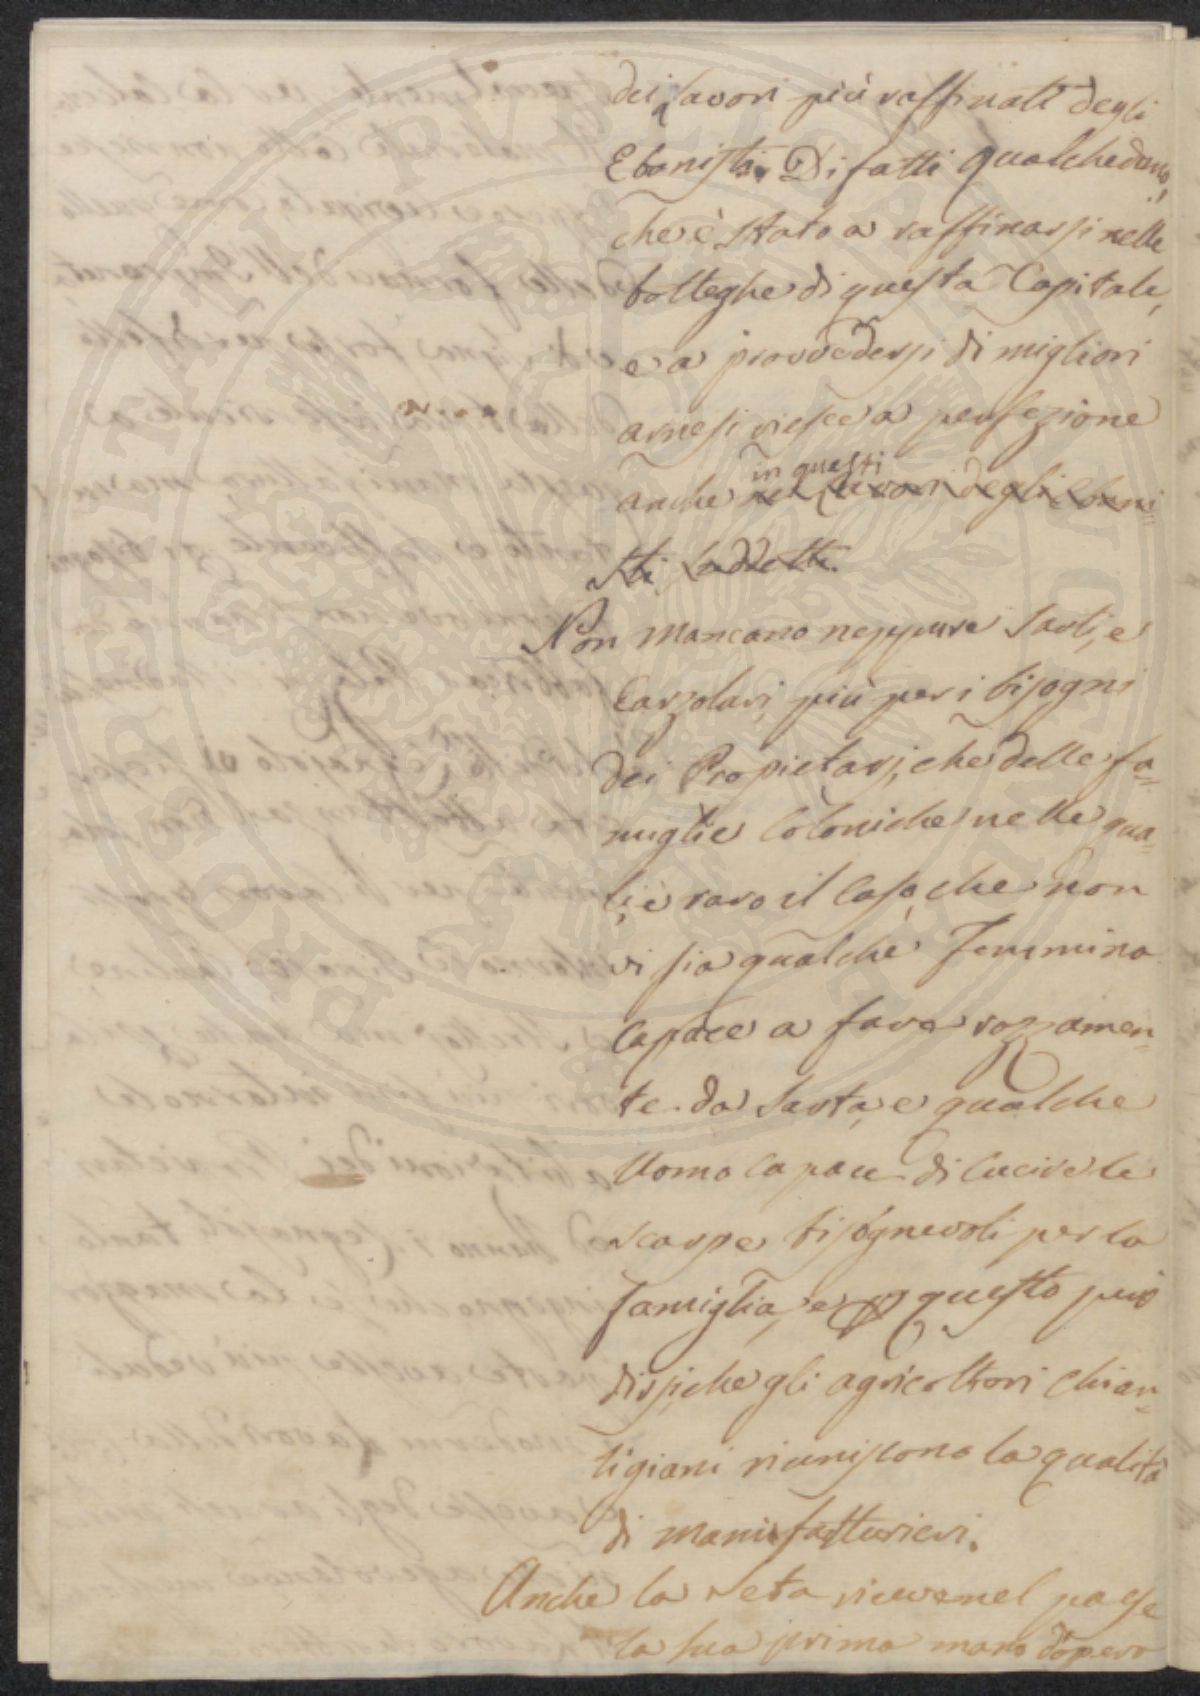 dei lavori più raffinati degli
Ebanisti. Di fatti qualcheduno,
che è stato a raffinarsi nelle
botteghe di questa Capitale,
e a provvedersi di migliori
arnesi riesce a perfezione
in questi
anche nei lavori degli Ebani=
sti suddetti.
Non mancano neppure Sarti, e
Carzolari, più per i bisogni
dei Propietarj, che delle fa=
miglie Coloniche nelle qua=
li è raro il caso, che non
vi sia qualche Femmina
capace a fare rozzamen=
te da Sarta, e qualche
Uomo capace di cucire le
scarpe bisognevoli per la
famiglia, e questo può
dirsi, che gli agricoltori Chian=
tigiani riuniscono la qualità
di manifatturieri.
Anche la seta riceve nel paese
la sua prima mano d'opera
PROSPERITATI PUBLICAE AUGENDAE